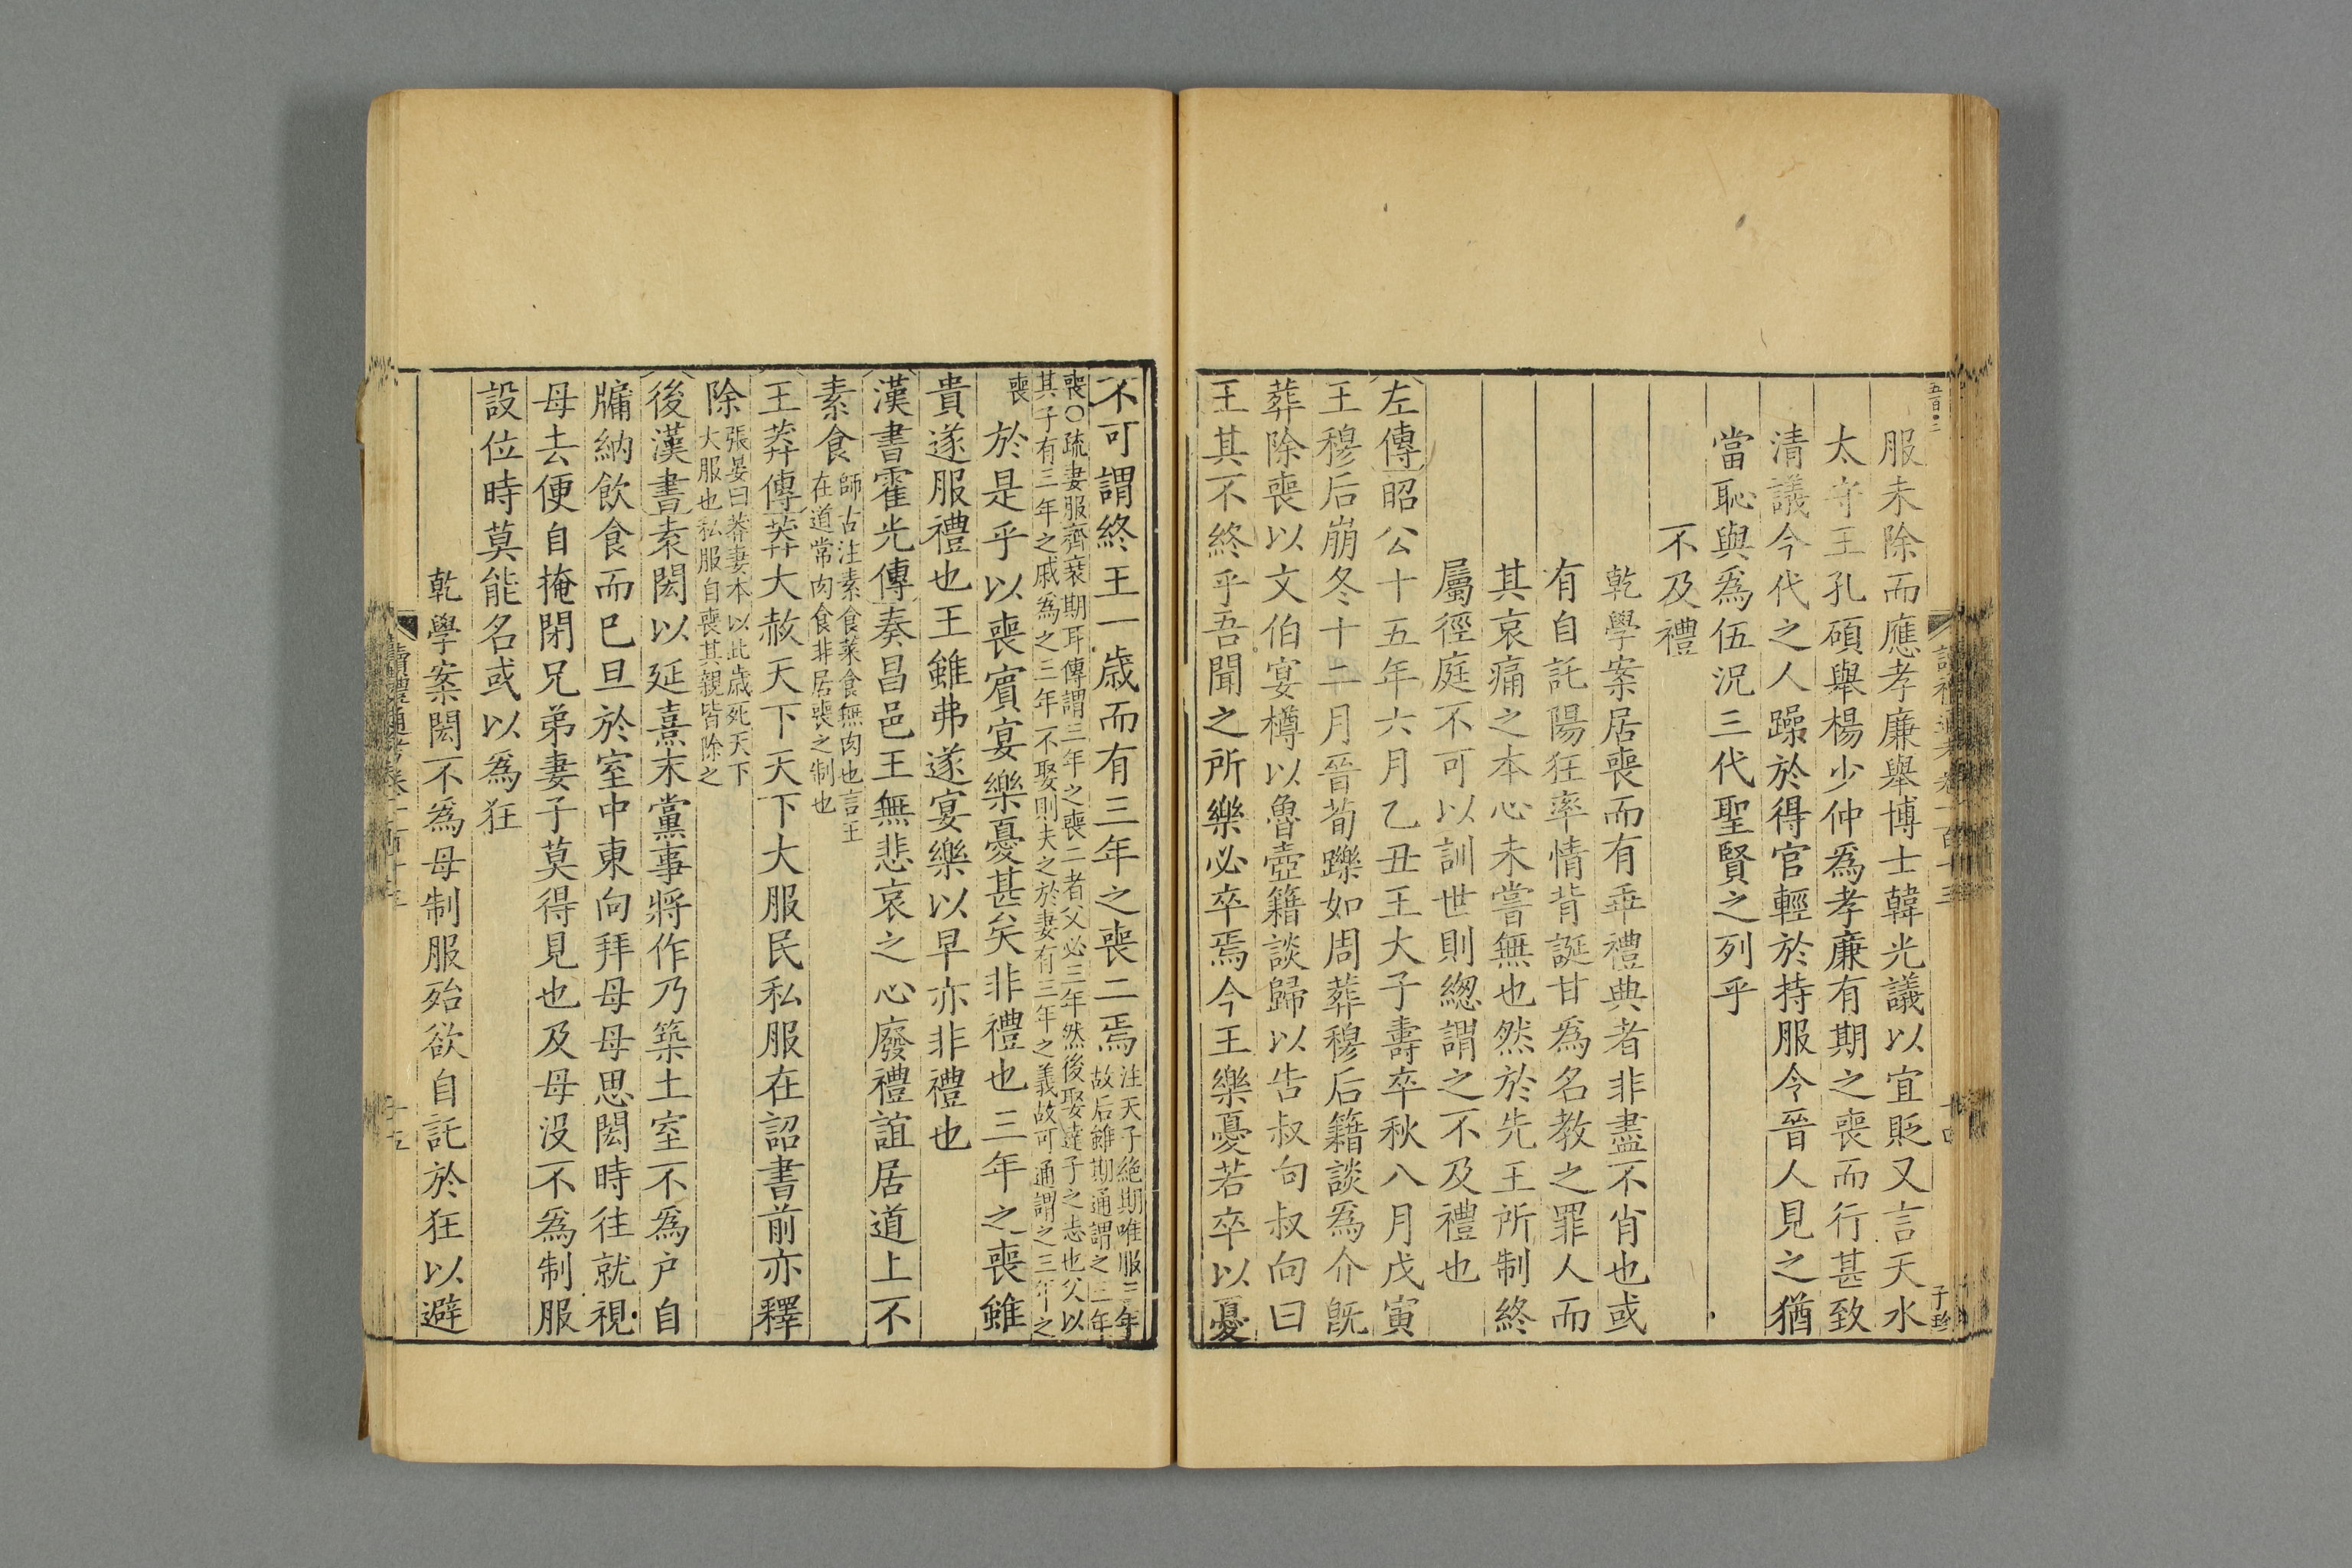 五百●二
服未除而應孝廉舉博士韓光議以宜貶又言天水
太守王孔碩舉楊少仲爲孝廉有期之喪而行甚致
清議今代之人躁於得官輕於持服令晉人見之猶
當恥與爲伍況三代聖賢之列乎
不及禮
乾學案居喪而有乖禮典者非盡不肖也或
有自託陽狂率情背誕甘爲名教之罪人而
其哀痛之本心未嘗無也然於先王所制終
屬徑庭不可以訓世則緫謂之不及禮也
左傳昭公十五年六月乙丑王大子壽卒秋八月戊寅
王穆后崩冬十二月晉荀躒如周葬穆后籍談爲介旣
葬除喪以文伯宴樽以魯壺籍談歸以告叔向叔向曰
王其不終乎吾聞之所樂必卒焉今王樂憂若卒以憂
讀禮通考卷一百十三
十四
子珍
不可謂終王一歲而有三年之喪二焉注天子絶期唯服三年
故后雖期通謂之三年
喪○疏妻服齊衰期耳傳謂三年之喪二者父必三年然後娶達子之志也父以
其子有三年之戚爲之三年不娶則夫之於妻有三年之義故可通謂之三年之
喪
於是乎以喪賓宴樂憂甚矣非禮也三年之喪雖
貴遂服禮也王雖弗遂宴樂以早亦非禮也
漢書霍光傳奏昌邑王無悲哀之心廢禮誼居道上不
素食師古注素食菜食無肉也言王
在道常肉食非居喪之制也
王莽傳莽大赦天下天下大服民私服在詔書前亦釋
除張晏曰莽妻本以此歲死天下
大服也私服自喪其親皆除之
後漢書袁閎以延熹末黨事將作乃築土室不爲户自
牖納飲食而已旦於室中東向拜母母思閎時往就視
母去便自掩閉兄弟妻子莫得見也及母没不爲制服
設位時莫能名或以爲狂
乾學案閎不爲母制服殆欲自託於狂以避
讀禮通考卷一百十三
十五